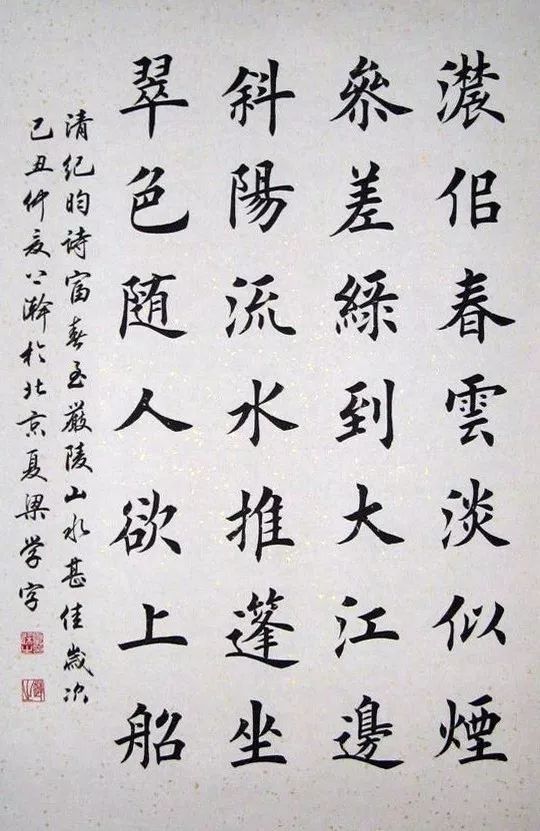 濃佀春雲淡似煙
參差綠到大江邊
斜陽流水推篷坐
翠色随人欲上船
清纪昀詩富春至嚴陵山水甚佳歲次
己丑仲夏公瀚於北京夏梁学字